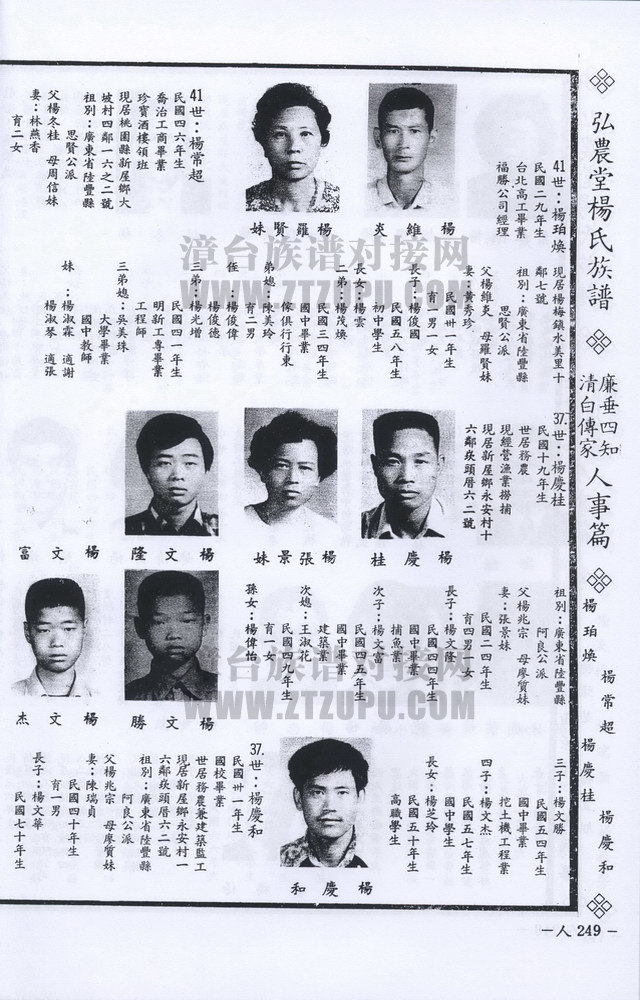 弘農堂楊氏族譜
廉垂四知
清白傳家
人事篇
楊珀煥
楊常超
楊慶桂
楊慶和
一人 249 一
41世：楊珀煥
民國二九年生
台北高工畢業
福勝公司經理
楊維炎
楊羅賢妹
41世：楊常超
民國四六年生
喬治工商畢業
珍寶酒樓領班
現居桃園縣新屋鄉大
坡村四鄰一六之二號
祖別：廣東省陸豐縣
思賢公派
父楊冬桂　母周信妹
妻：林燕香
育二女
現居楊梅鎮水美里十
鄰七號
祖別：廣東省陸豐縣
思賢公派
父楊維炎　母羅賢妹
妻：黃秀珍
民國卅一年生
育一男一女
長子：楊俊國
民國五八年生
初中學生
長女：楊雲
二弟：楊茂煥
民國三四年生
國中畢業
傢俱行行東
弟媳：陳美玲
育二男
侄：楊俊偉
楊俊德
三弟：楊光增
民國四一年生
明新工專畢業
工程師
三弟媳：吳美珠
大學畢業
國中教師
妹：楊淑霖　適謝
楊淑琴　適張
漳台族谱对接网
WWW.ZTZUPU.COM
37世：楊慶桂
民國十九年生
世居務農
現經營漁業撈捕
現居新屋鄉永安村十
六鄰崁頭厝六二號
楊慶桂
楊張景妹
楊文隆
楊文富
祖別：廣東省陸豐縣
阿良公派
父楊兆宗　母廖質妹
妻：張景妹
民國二四年生
育四男一女
長子：楊文隆
民國四四年生
國中畢業
捕魚業
次子：楊文富
民國四五年生
國中畢業
建築業
次媳：王淑花
民國四九年生
育一女
孫女：楊偉怡
楊文勝
楊文杰
漳台族谱对接网
WWW.ZTZUPU.COM
三子：楊文勝
民國五四年生
國中畢業
挖土機工程業
四子：楊文杰
民國五七年生
國中學生
長女：楊芝玲
民國五十年生
高職學生
楊慶和
37世：楊慶和
民國卅一年生
國校畢業
世居務農兼建築監工
現居新屋鄉永安村一
六鄰崁頭厝六二號
祖別：廣東省陸豐縣
阿良公派
父楊兆宗　母廖質妹
妻：陳瑞貞
民國四十年生
育一男
長子：楊文華
民國七十年生